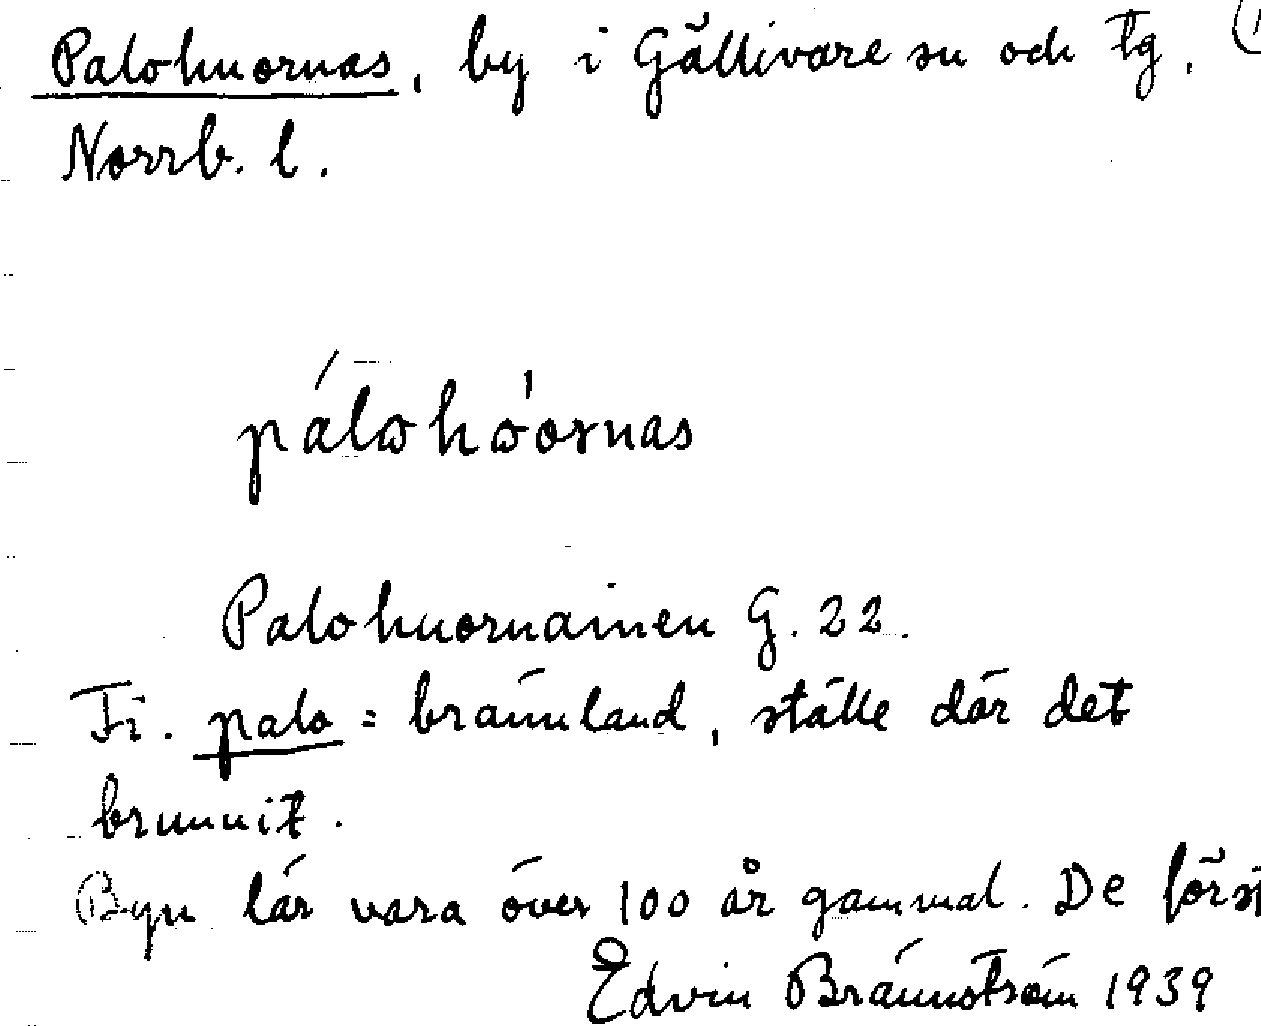 Palohuornas, by i Gällivare sn och tg. (1
Norrb. l.
pálohóornas
Palohuornainen G. 22.
Fi. palo = brännland, ställe där det
brunnit.
Byn lär vara över 100 år gammal. De först
Edvin Brännström 1939